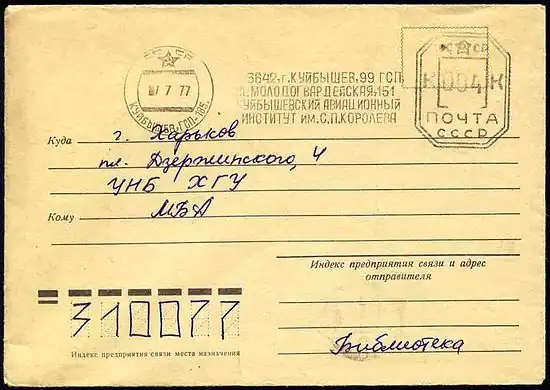 СССР
7 77
КУЙБЫШЕВ-ГСП-185
3642, г. КУЙБЫШЕВ, 99 ГСП
МОЛОДОГВАРДЕЙСКАЯ, 151
КУЙБЫШЕВСКИЙ АВИАЦИОННЫЙ
ИНСТИТУТ ИМ. С.П. КОРОЛЕВА
СССР
К 004 К
ПОЧТА
СССР
Куда г. Харьков
пл. Дзержинского, 4
УНБ ХГУ
Кому МБА
Индекс предприятия связи и адрес
отправителя
310077
Индекс предприятия связи места назначения
Библиотека